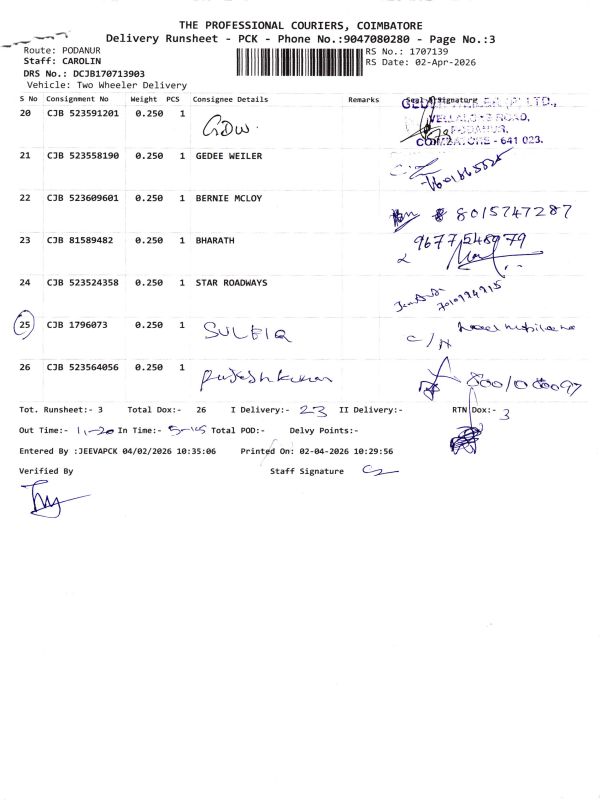 THE PROFESSIONAL COURIERS, COIMBATORE
Delivery Runsheet - PCK - Phone No.:9047080280 - Page No.:3
Route: PODANUR RS No.: 1707139
Staff: CAROLIN RS Date: 02-Apr-2026
DRS No.: DCJB170713903
Vehicle: Two Wheeler Delivery
S No Consignment No Weight PCS Consignee Details Remarks Seal & Signature
20 CJB 523591201 0.250 1 GDW.
(P) LTD.,
ROAD,
PODANUR,
COIMBATORE - 641 023.
21 CJB 523558190 0.250 1 GEDEE WEILER
22 CJB 523609601 0.250 1 BERNIE MCLOY 8015747287
23 CJB 81589482 0.250 1 BHARATH 9677548979
24 CJB 523524358 0.250 1 STAR ROADWAYS
25 CJB 1796073 0.250 1 C/N
26 CJB 523564056 0.250 1 Rajeshkumar
Tot. Runsheet:- 3 Total Dox:- 26 I Delivery:- 23 II Delivery:- RTN Dox:- 3
Out Time:- 11-20 In Time:- 5-45 Total POD:- Delvy Points:-
Entered By :JEEVAPCK 04/02/2026 10:35:06 Printed On: 02-04-2026 10:29:56
Verified By Staff Signature